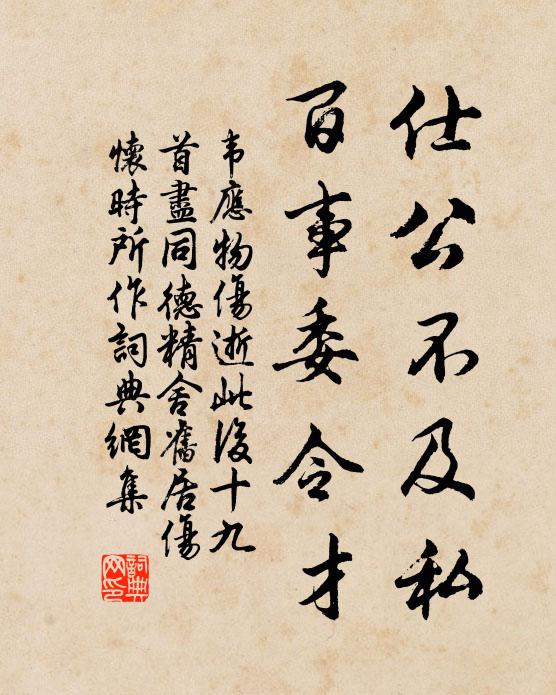 仕公不及私
百事委令才
韦應物傷逝此後十九
首盡同德精舍舊居傷
懷時所作詞典網集
詞典
网印